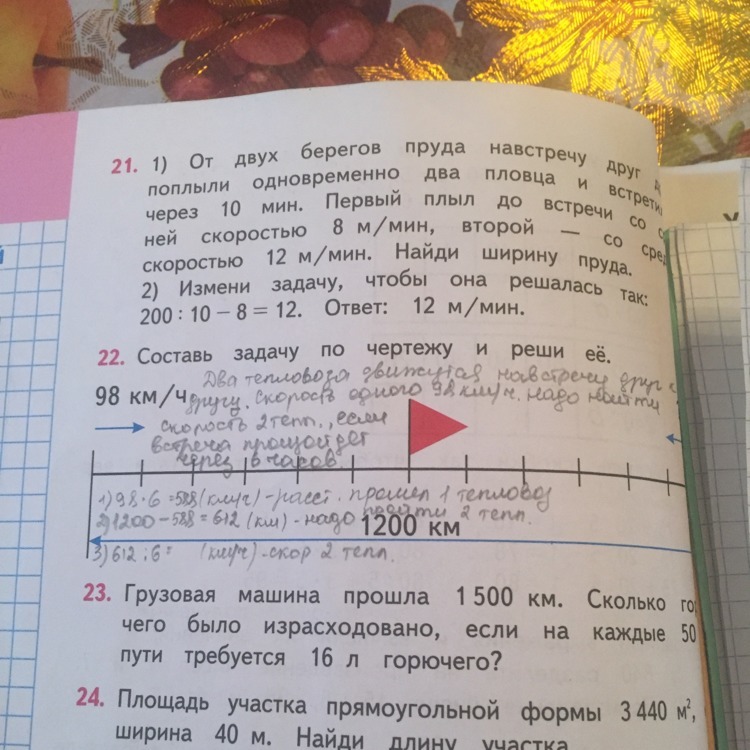 21. 1) От двух берегов пруда навстречу друг
поплыли одновременно два пловца и встрети
через 10 мин. Первый плыл до встречи со с
ней скоростью 8 м/мин, второй — со сред
скоростью 12 м/мин. Найди ширину пруда.
2) Измени задачу, чтобы она решалась так:
200 : 10 – 8 = 12. Ответ: 12 м/мин.
22. Составь задачу по чертежу и реши её.
Два тепловоза движутся навстречу друг
98 км/ч другу. Скорость одного 98 км/ч. надо найти
скорость 2 тепл., если
встреча произойдет
через 6 часов.
1) 98 · 6 = 588 (км/ч) - расст. прошел 1 тепловоз
2) 1200 – 588 = 612 (км) - надо пройти 2 тепл.
1200 км
3) 612 : 6 = (км/ч) - скор 2 тепл.
23. Грузовая машина прошла 1 500 км. Сколько го
чего было израсходовано, если на каждые 50
пути требуется 16 л горючего?
24. Площадь участка прямоугольной формы 3 440 м²,
ширина 40 м. Найди длину участка